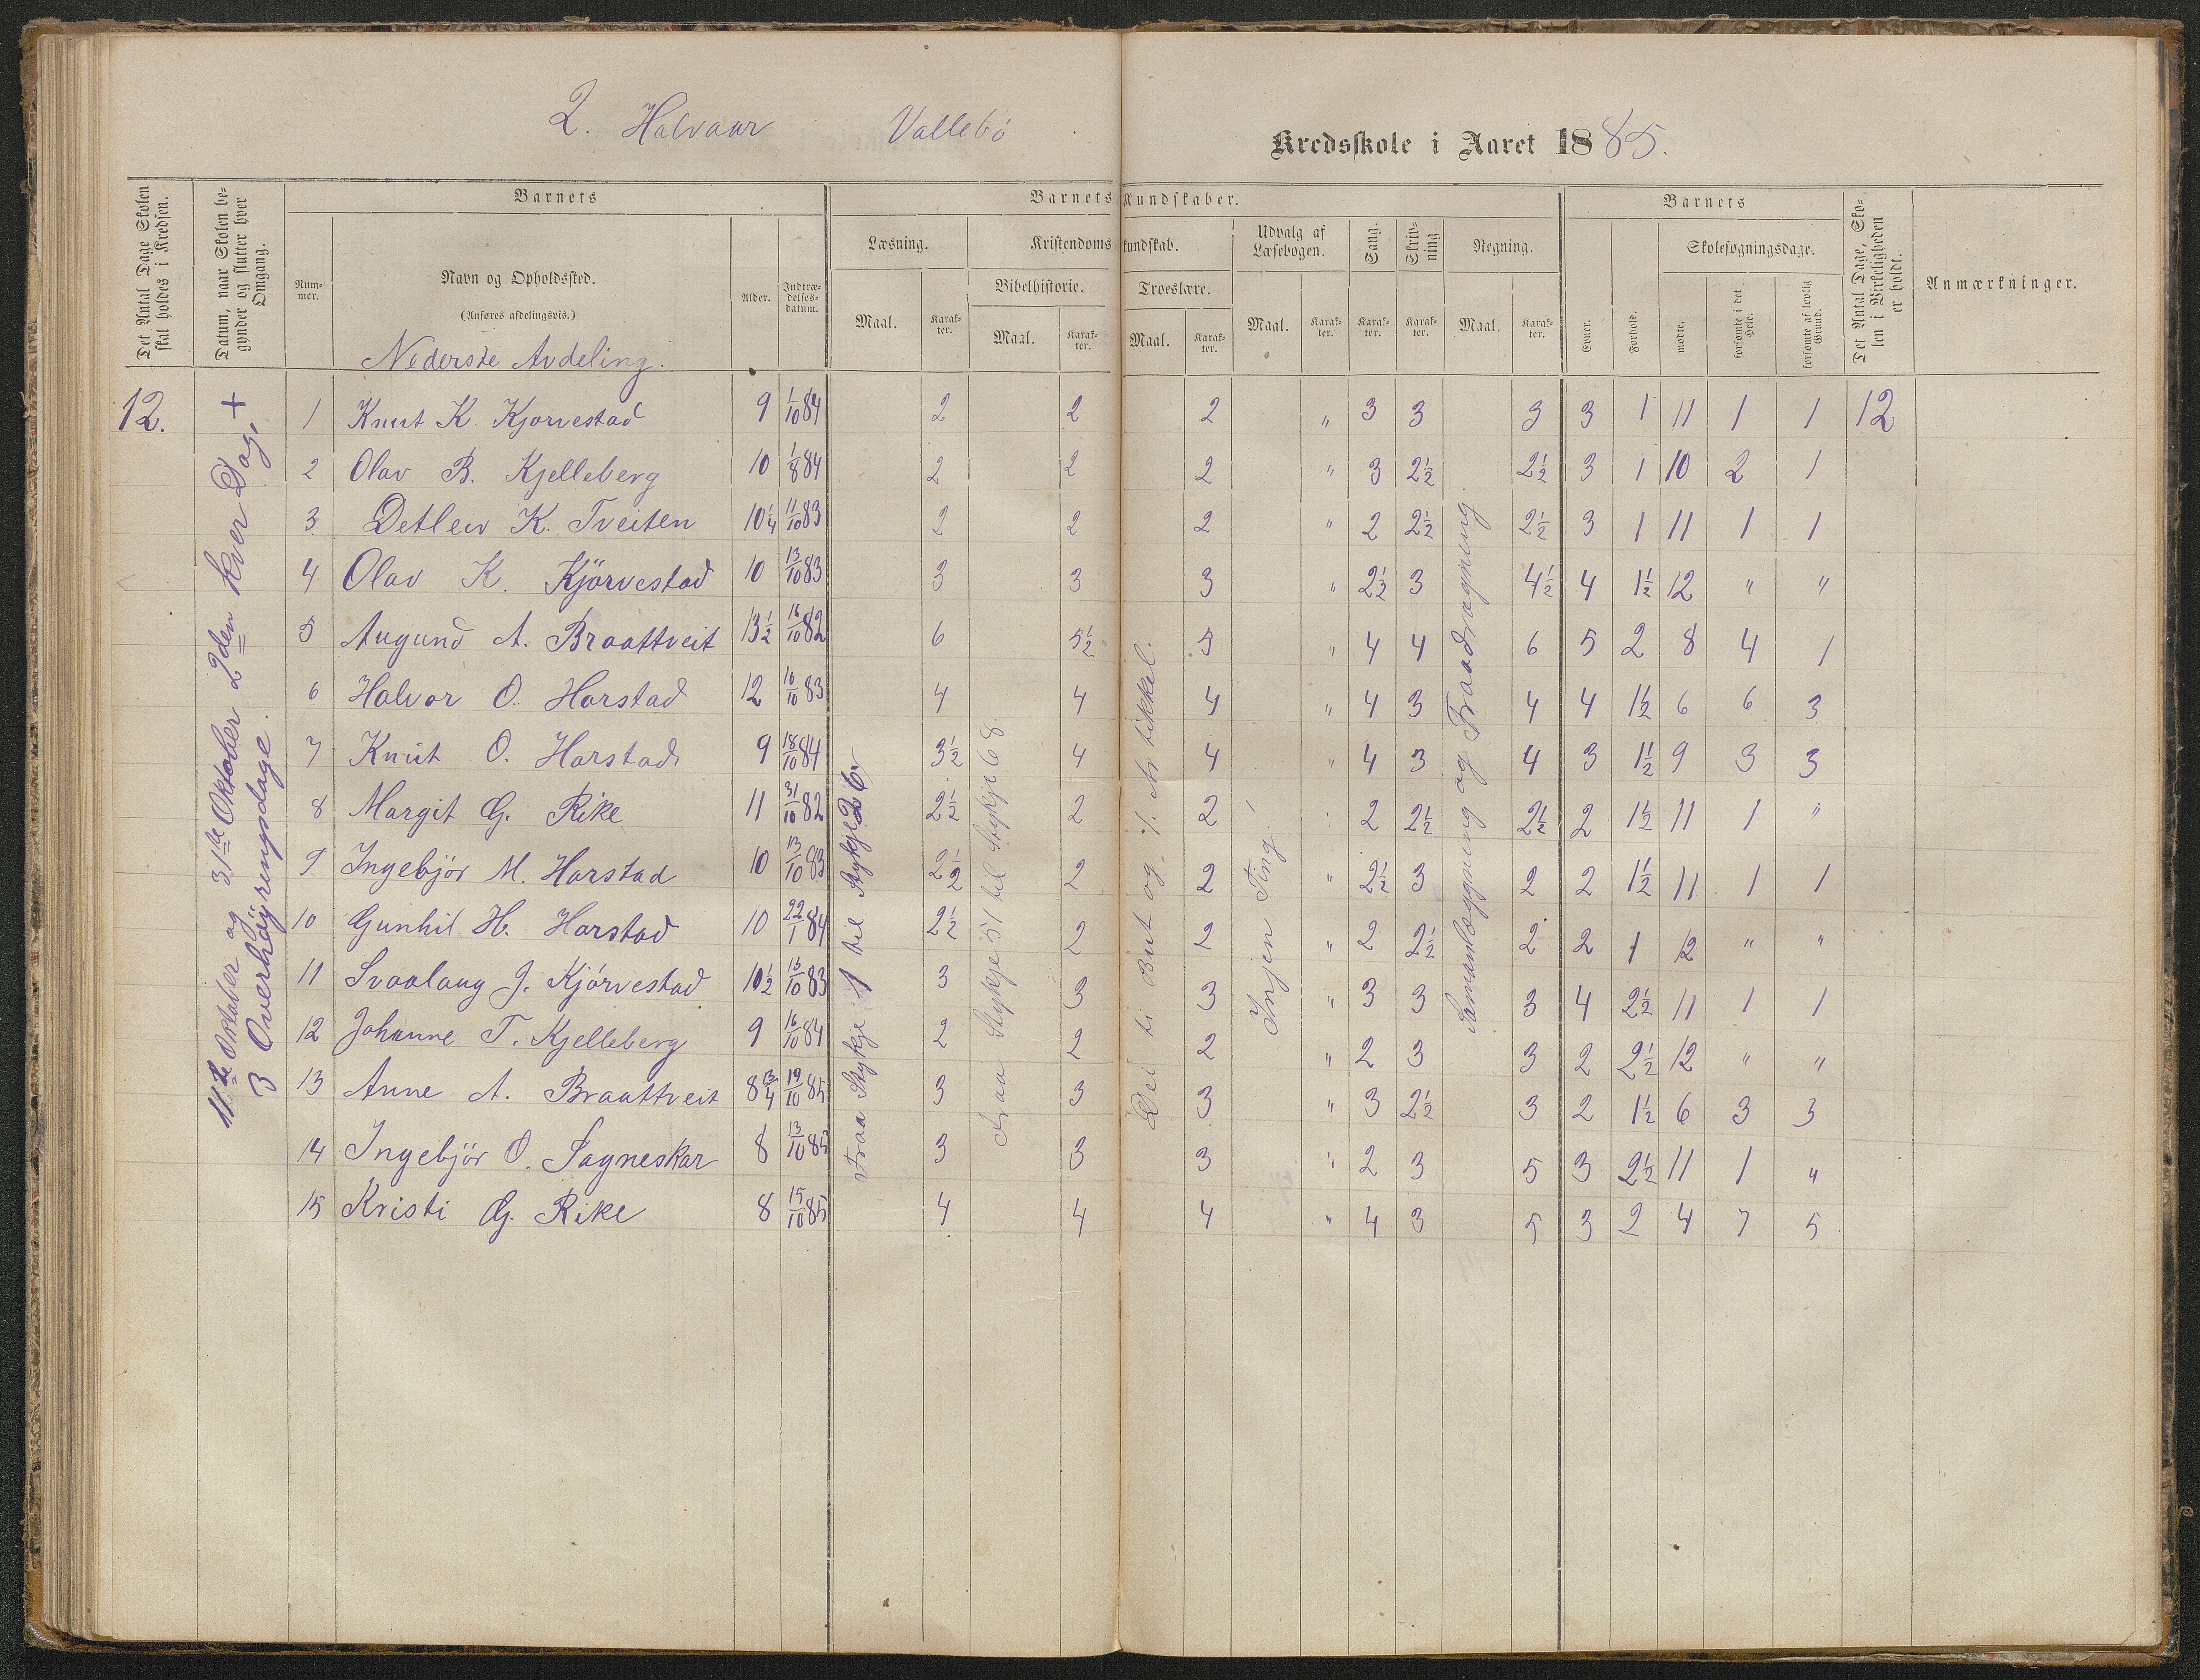 2. Halvaar Vallebö Kredsskole i Aaret 1885.
Det Antal Dage Skolen skal holdes i Kredsen.
Datum, naar Skolen begynder og slutter hver Omgang.
Barnets
Nummer.
Navn og Opholdssted.
(Anføres afdelingsvis.)
Nederste Avdeling.
Alder.
Indtrædelsesdatum.
Barnets Kundskaber.
Læsning.
Maal.
Karakter.
Kristendomskundskab.
Bibelhistorie.
Maal.
Karakter.
Troeslære.
Maal.
Karakter.
Udvalg af Læsebogen.
Maal.
Karakter.
Sang.
Karakter.
Skrivning.
Karakter.
Regning.
Maal.
Karakter.
Barnets
Evner.
Forhold.
Skolesøgningsdage.
mødte.
forsømte i det Hele.
forsømte af lovlig Grund.
Det Antal Dage, Skolen i Virkeligheden er holdt.
Anmærkninger.
12.
11te Oktober og 31te Oktober 2den kver Dag, +
3 Overhöyringsdage.
Fraa Stykje 1 til Stykje 26
Fraa Stykje 51 til Stykje 68.
Dei ti But og 1. Artikkel.
Ingen Ting
Samanlæggning og Fraadragning.
1 Knut K. Kjorvestad 9 1/10 84 2 2 2 " 3 3 3 3 1 11 1 1 12
2 Olav B. Kjelleberg 10 1/8 84 2 2 2 " 3 2½ 2½ 3 1 10 2 1
3 Detleiv K. Tveiten 10¼ 11/10 83 2 2 2 " 2 2½ 2½ 3 1 11 1 1
4 Olav K. Kjörvestad 10 13/10 83 3 3 3 " 2½ 3 4½ 4 1½ 12 " "
5 Augund A. Braattveit 13½ 16/10 82 6 5½ 5 " 4 4 6 5 2 8 4 1
6 Halvor O. Harstad 12 16/10 83 4 4 4 " 4 3 4 4 1½ 6 6 3
7 Knut O. Harstad 9 18/10 84 3½ 4 4 " 4 3 4 3 1½ 9 3 3
8 Margit G. Rike 11 31/10 82 2½ 2 2 " 2 2½ 2½ 2 1½ 11 1 "
9 Ingebjör M. Harstad 10 13/10 83 2½ 2 2 " 2½ 3 2 2 1½ 11 1 1
10 Gunhil H. Harstad 10 22/1 84 2½ 2 2 " 2 2½ 2 2 1 12 " "
11 Svaalaug J. Kjörvestad 10½ 15/10 83 3 3 3 " 3 3 3 4 2½ 11 1 1
12 Johanne T. Kjelleberg 9 16/10 84 2 2 2 " 2 3 3 2 2½ 12 " "
13 Anne A. Braattveit 8¾ 19/10 85 3 3 3 " 3 2½ 3 2 1½ 6 3 3
14 Ingebjör O. Sagneskar 8 13/10 85 3 3 3 " 2 3 5 3 2½ 11 1 "
15 Kristi G. Rike 8 15/10 85 4 4 4 " 4 3 5 3 2 4 7 5